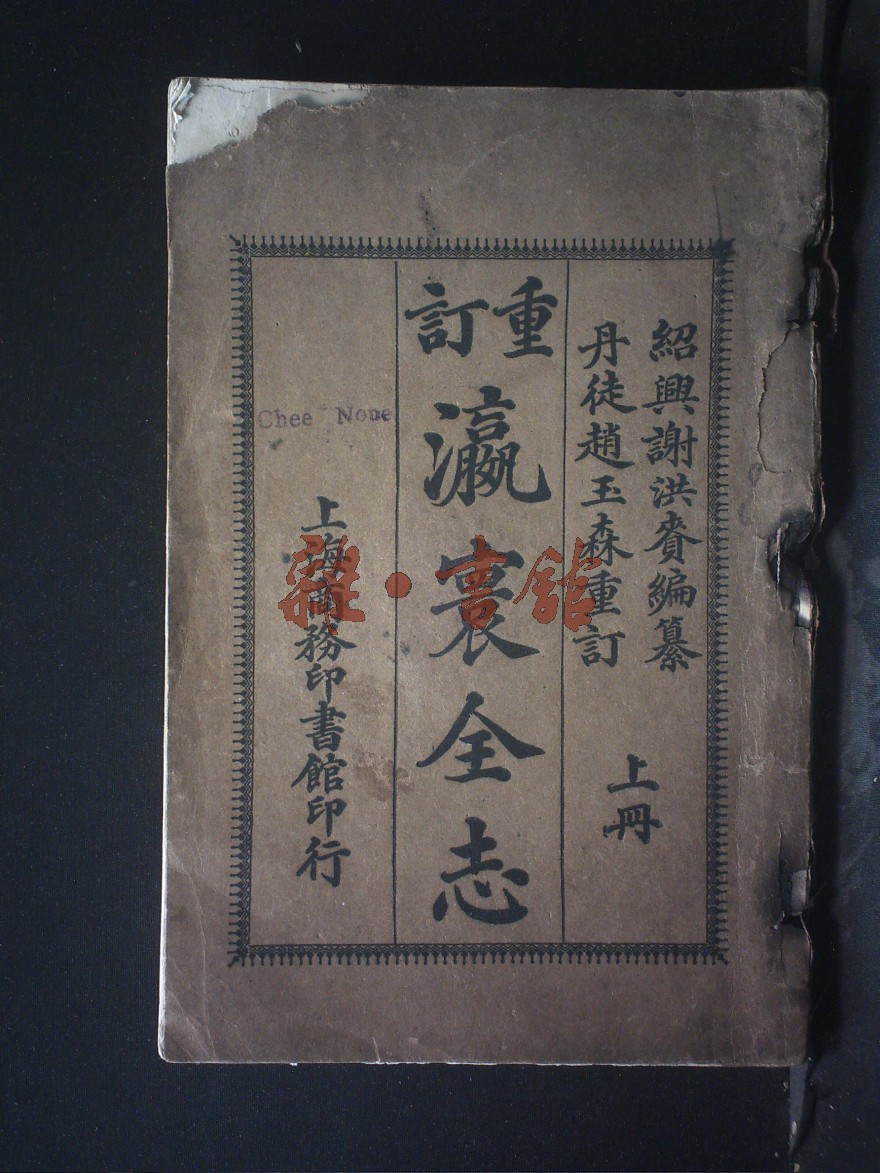 紹興謝洪賚編纂
丹徒趙玉森重訂
上冊
重訂
瀛寰全志
上海商務印書館印行
Chee None
雜·書館